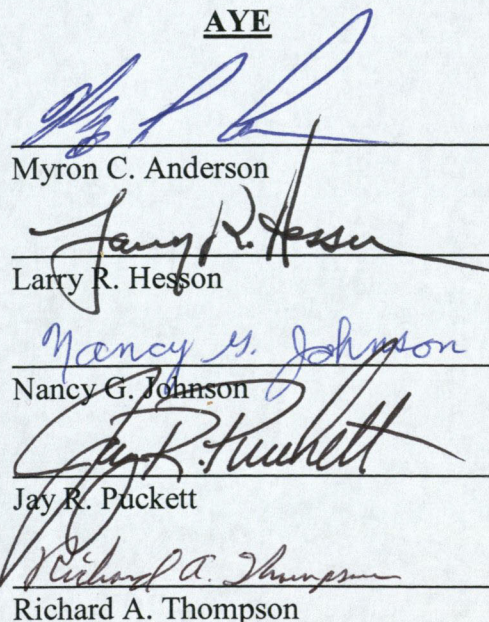 AYE
Myron C. Anderson
Larry R. Hesson
Larry R. Hesson
Nancy G. Johnson
Nancy G. Johnson
Jay R. Puckett
Jay R. Puckett
Richard A. Thompson
Richard A. Thompson